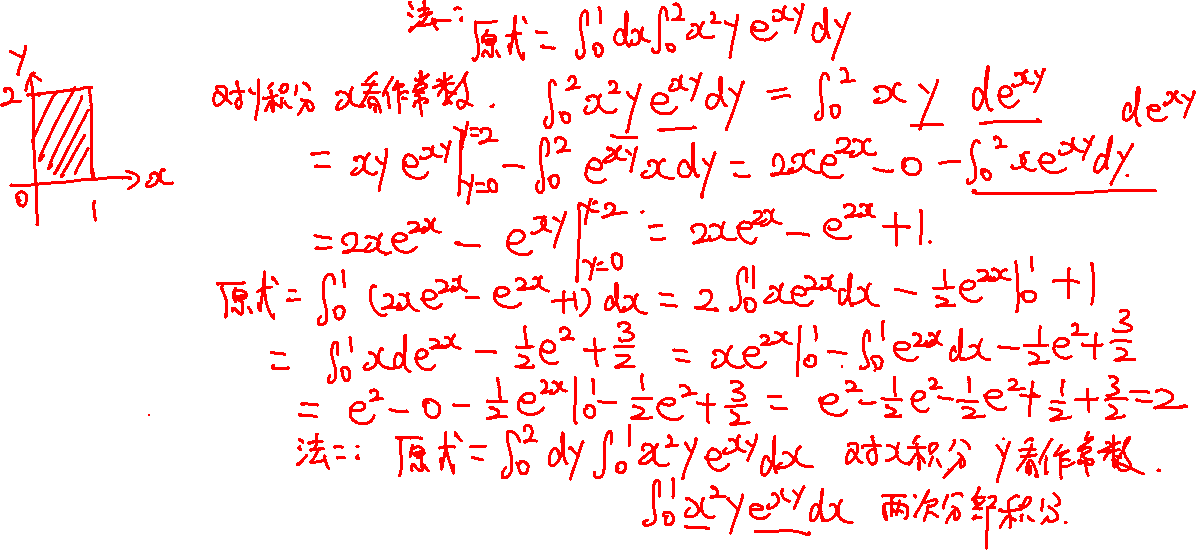 法一: 原式 = ∫₀¹ dx ∫₀² x²y e^{xy} dy
y
2
0
1
x
对y积分 x看作常数. ∫₀² x²y e^{xy} dy = ∫₀² x y de^{xy}
de^{xy}
= xy e^{xy} |_{y=0}^{y=2} - ∫₀² e^{xy} x dy = 2xe^{2x} - 0 - ∫₀² xe^{xy} dy.
= 2xe^{2x} - e^{xy} |_{y=0}^{y=2} = 2xe^{2x} - e^{2x} + 1.
原式 = ∫₀¹ (2xe^{2x} - e^{2x} + 1) dx = 2∫₀¹ xe^{2x} dx - ½e^{2x} |₀¹ + 1
= ∫₀¹ x de^{2x} - ½e² + 3/2 = xe^{2x} |₀¹ - ∫₀¹ e^{2x} dx - ½e² + 3/2
= e² - 0 - ½e^{2x} |₀¹ - ½e² + 3/2 = e² - ½e² - ½e² + ½ + 3/2 = 2
法二: 原式 = ∫₀² dy ∫₀¹ x²y e^{xy} dx 对x积分 y看作常数.
∫₀¹ x²y e^{xy} dx 两次分部积分.